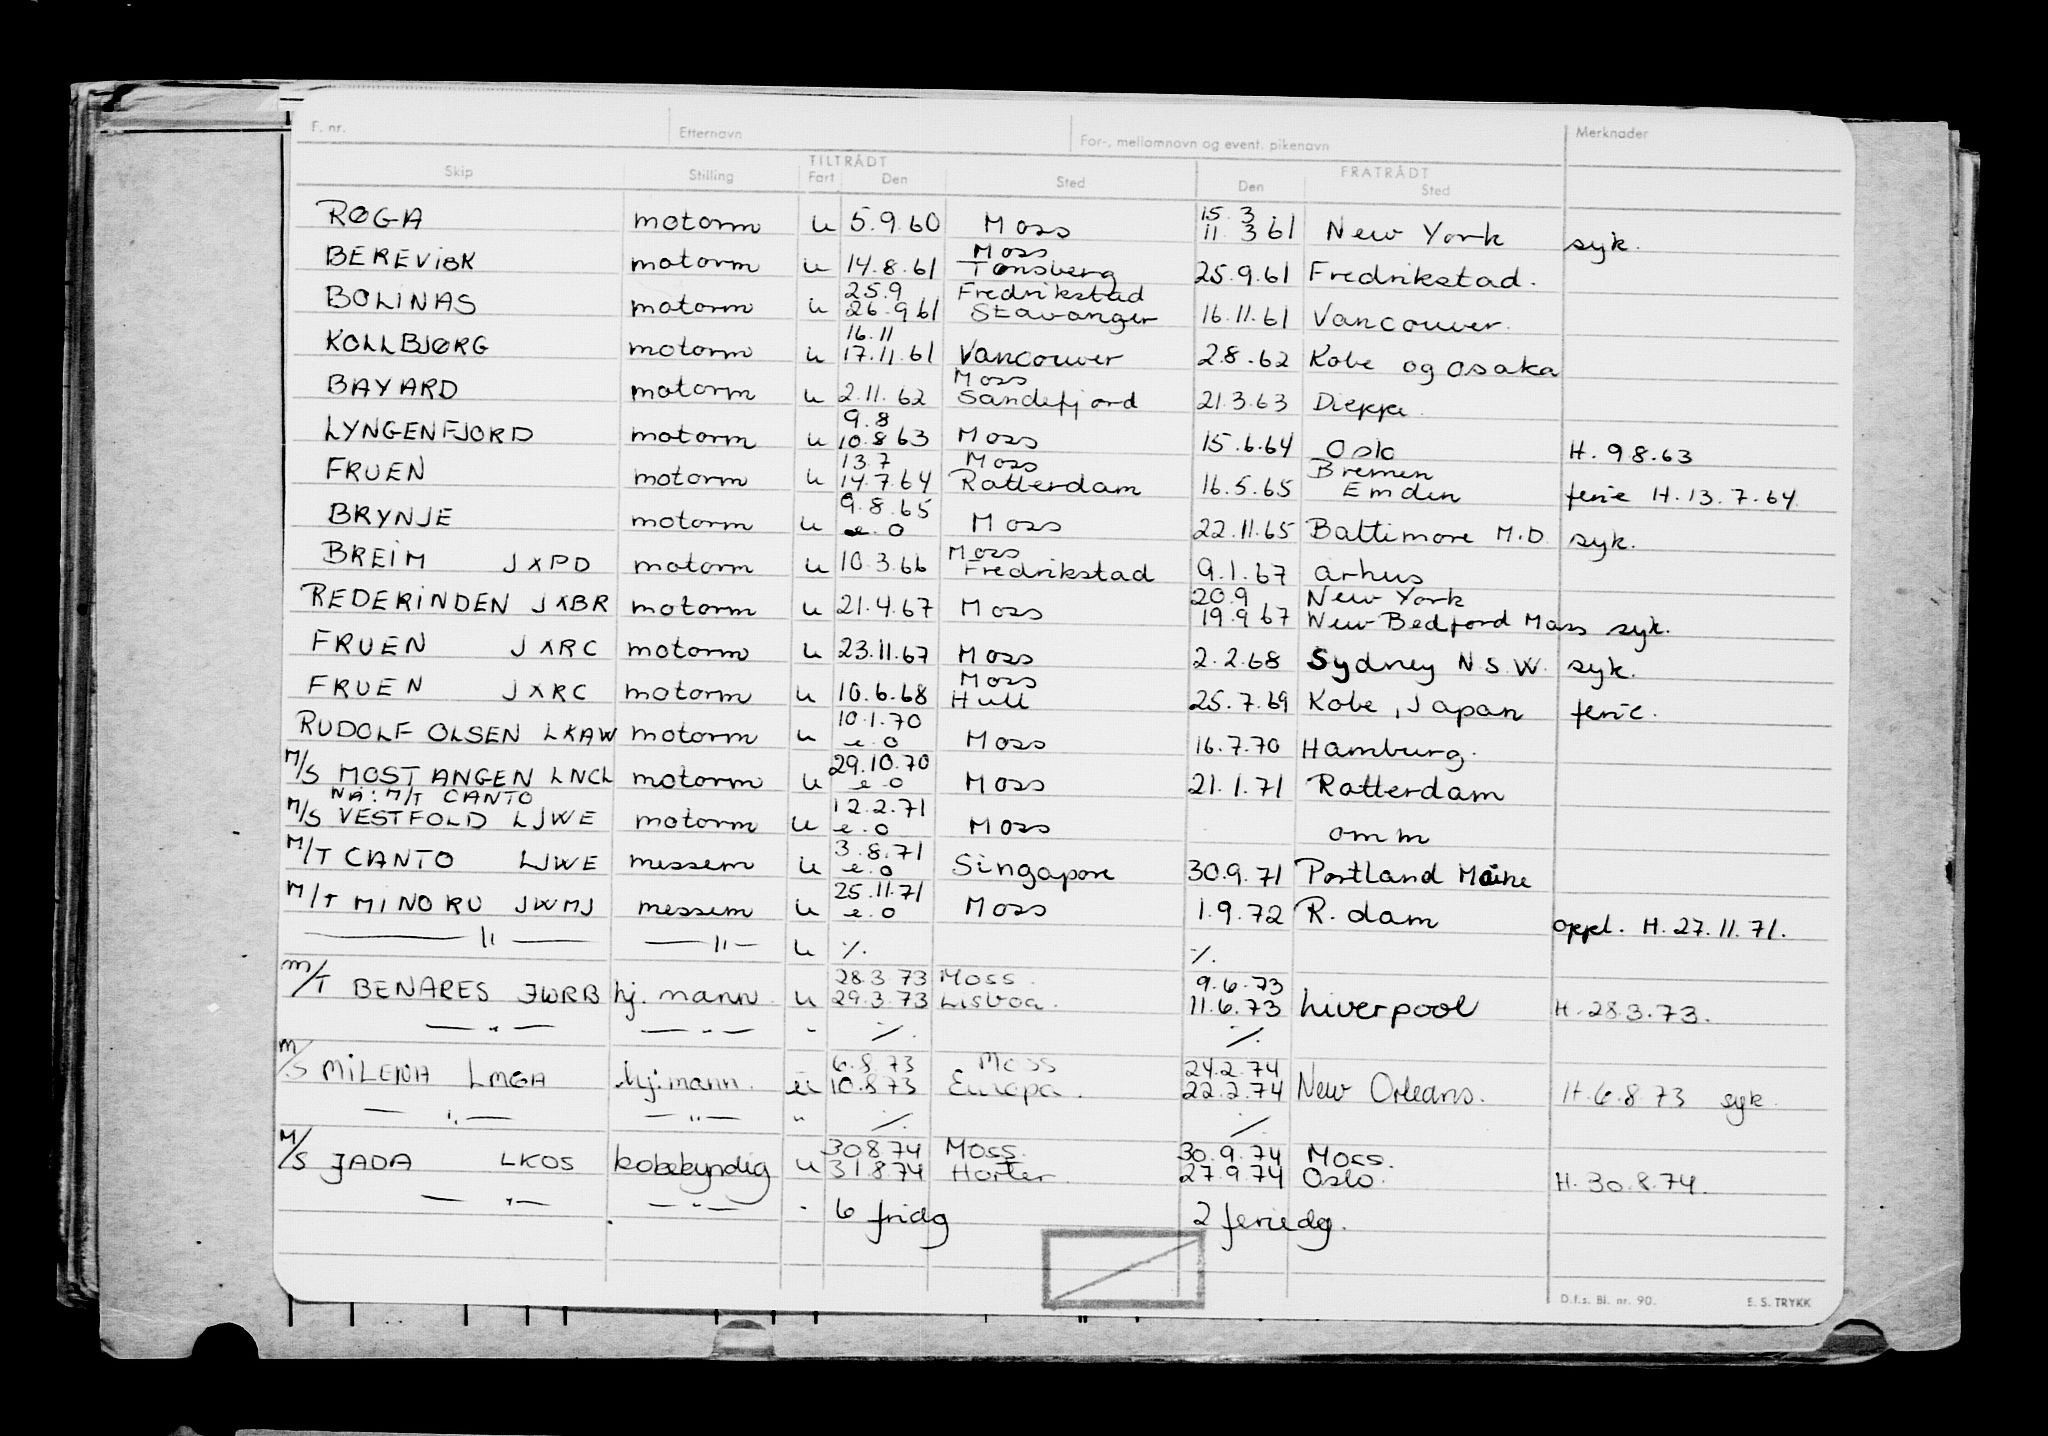 F. nr. Etternavn For-, mellomnavn og event. pikenavn Merknader
TILTRÅDT FRATRÅDT
Skip Stilling Fart Den Sted Den Sted
15.3
RØGA motorm u 5.9.60 Moss 11.3 61 New York syk.
Moss
BEREVIBK motorm u 14.8.61 Tønsberg 25.9.61 Fredrikstad.
25.9 Fredrikstad
BOLINAS motorm u 26.9 61 Stavanger 16.11.61 Vancouver.
16.11
KOLLBJØRG motorm u 17.11.61 Vancouver 2.8.62 Kobe og Osaka
Moss
BAYARD motorm u 2.11.62 Sandefjord 21.3.63 Dieppe.
9.8
LYNGENFJORD motorm u 10.8 63 Moss 15.6.64 Oslo H. 9 8.63
13.7 Moss Bremen
FRUEN motorm u 14.7.64 Rotterdam 16.5.65 Emden ferie H. 13.7.64.
9.8.65
BRYNJE motorm u e.o Moss 22.11.65 Baltimore M.D. syk.
Moss
BREIM JXPD motorm u 10.3.66 Fredrikstad 9.1.67 århus
20.9 New York
REDERINDEN JXBR motorm u 21.4.67 Moss 19.9 67 New Bedford Mass syk.
FRUEN JXRC motorm u 23.11.67 Moss 2.2.68 Sydney N.S.W. syk.
Moss
FRUEN JXRC motorm u 10.6.68 Hull 25.7.69 Kobe, Japan ferie.
10.1.70
RUDOLF OLSEN LKAW motorm u e.o Moss 16.7.70 Hamburg.
29.10.70
M/S MOSTANGEN LNCL motorm u e.o Moss 21.1.71 Rotterdam
NÅ: M/T CANTO 12.2.71
M/S VESTFOLD LJWE motorm u e.o Moss omm
3.8.71
M/T CANTO LJWE messem u e.o Singapore 30.9.71 Portland Maine
25.11.71
M/T MINORU JWMJ messem u e.o Moss 1.9.72 R.dam oppl. H. 27.11.71.
— " — — " — u ./. ./.
28.3.73 Moss. 9.6.73
M/T BENARES JWRB hj. mann. u 29.3.73 Lisboa. 11.6.73 Liverpool H. 28.3.73.
— " — — " — " ./. ./.
6.8.73 Moss 24.2.74
M/S MILENA LMGA hj.mann. u 10.8.73 Europa. 22.2.74 New Orleans. H. 6.8.73 syk.
— " — — " — " ./. ./.
30.8.74 Moss. 30.9.74 Moss.
M/S JADA LKOS kobekyndig u 31.8.74 Horten. 27.9.74 Oslo. H. 30.8.74.
— " — — " — " 6 fridg 2 feriedg.
D.f.s. Bl. nr. 90. E. S. TRYKK